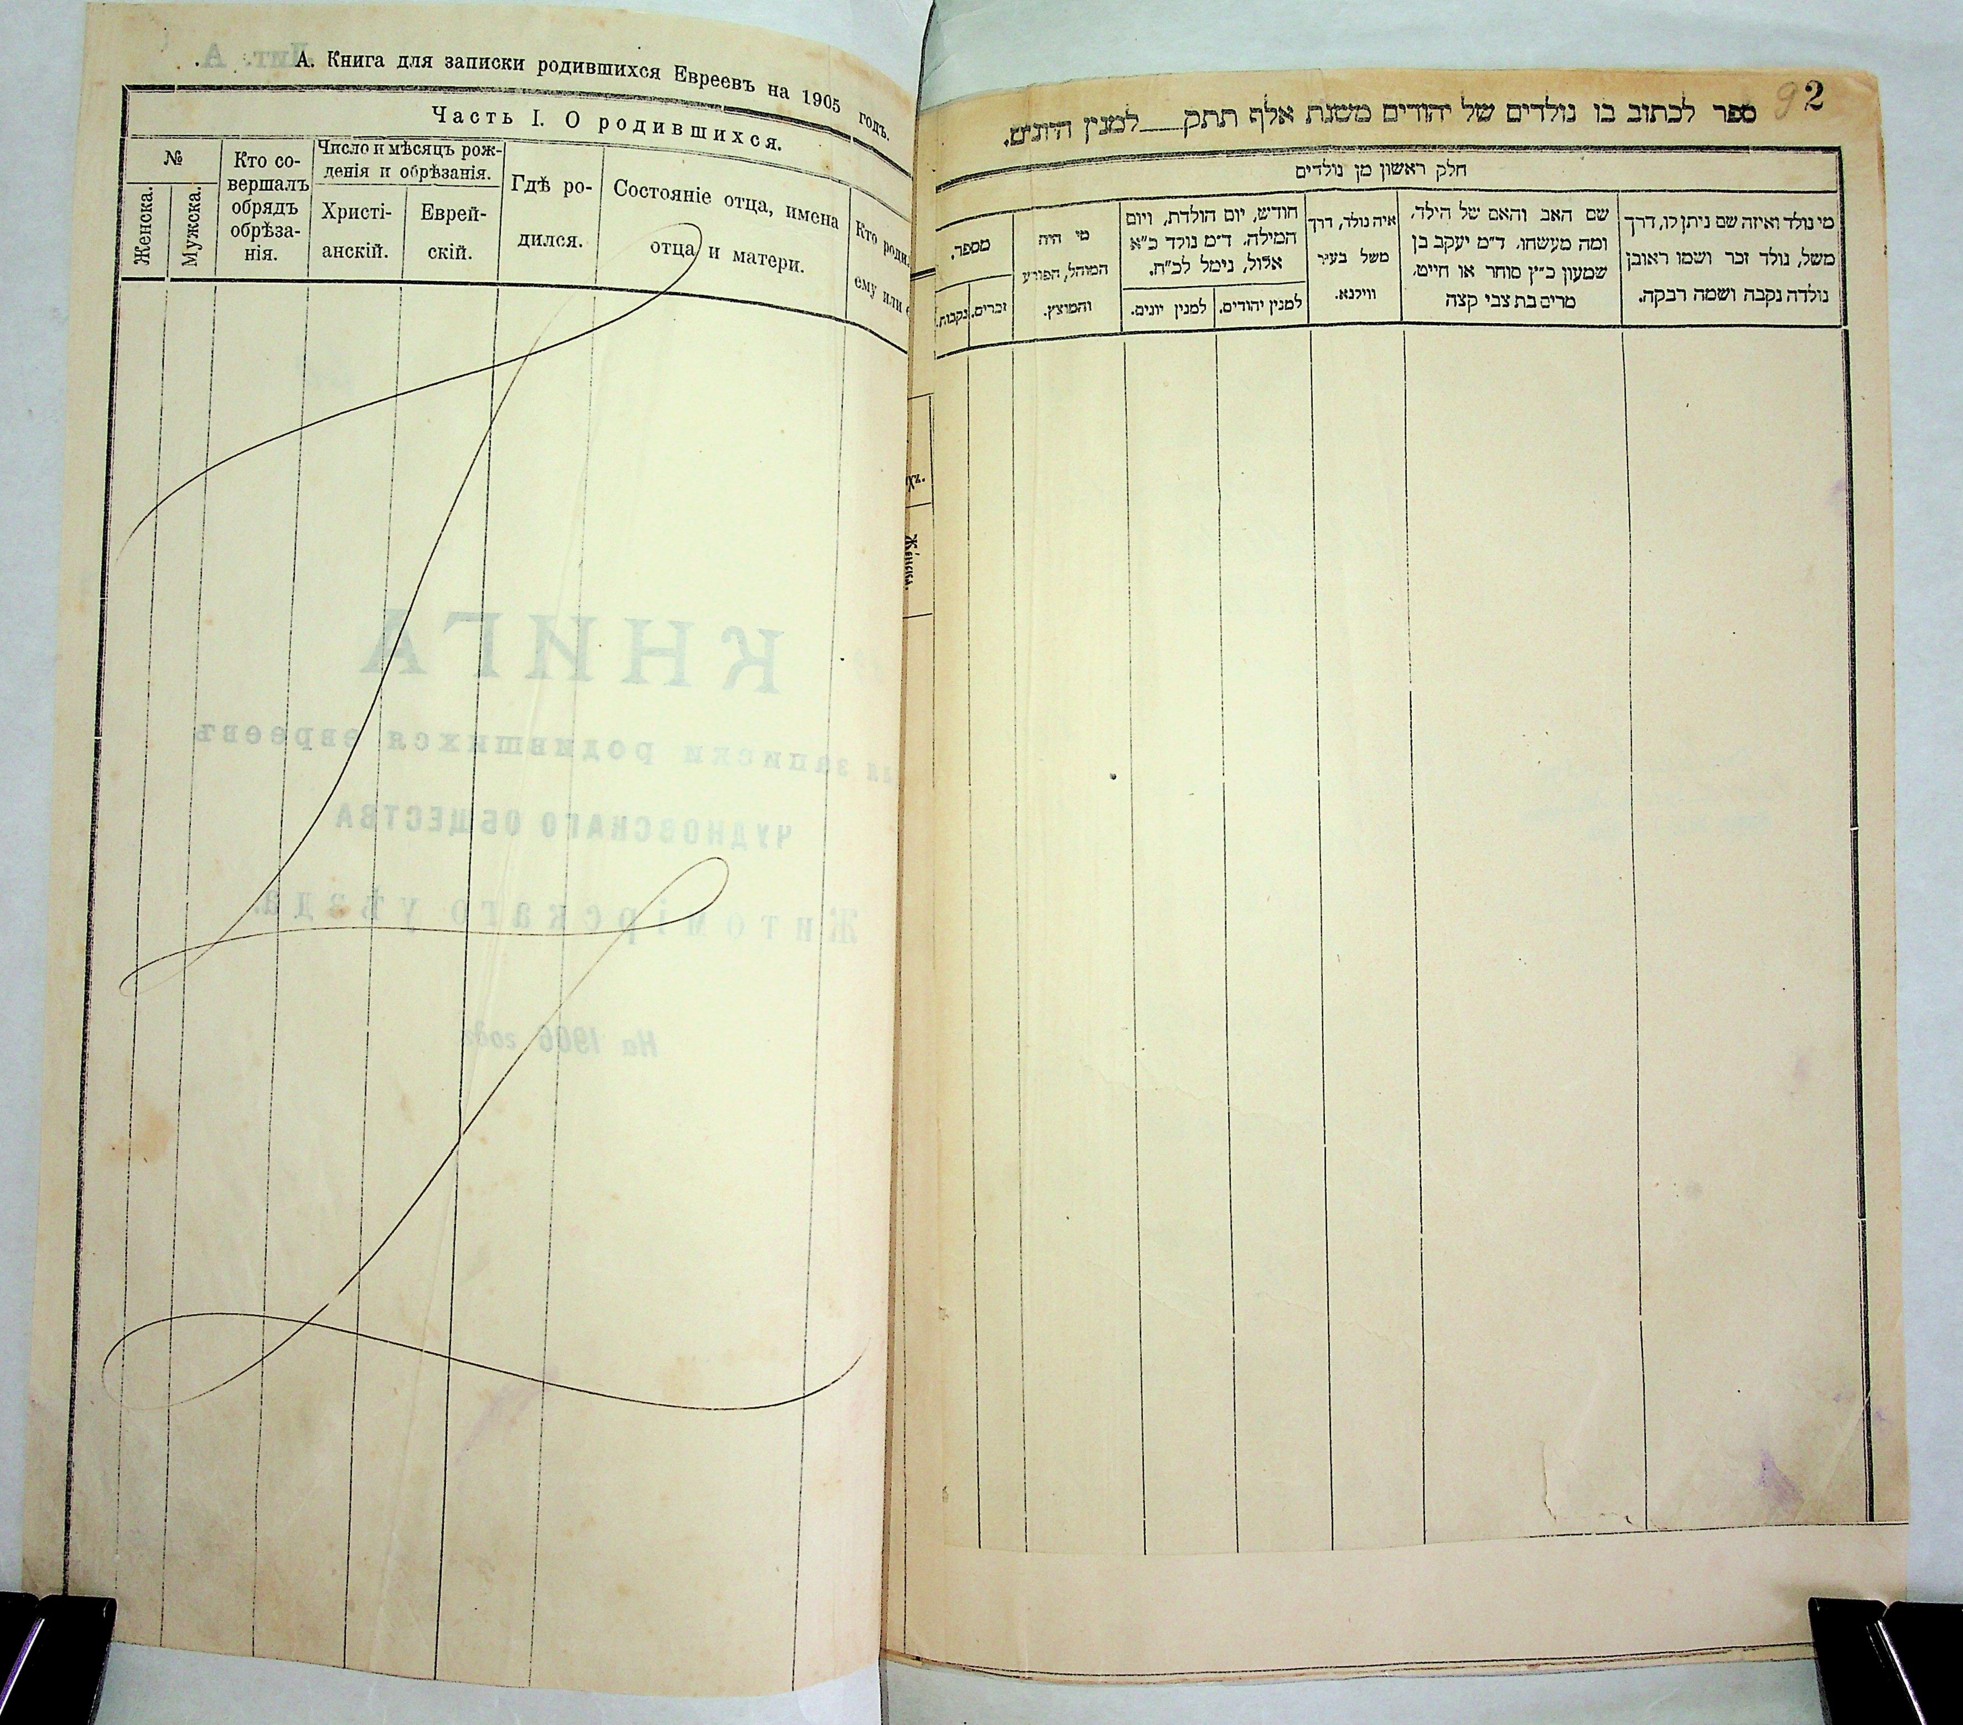 А. Книга для записки родившихся Евреевъ на 1905 годъ.
Часть I. О родившихся.
№
Женска.
Мужска.
Кто со-
вершалъ
обрядъ
обрѣза-
нія.
Число и мѣсяцъ рож-
денія и обрѣзанія.
Христі-
анскій.
Еврей-
скій.
Гдѣ ро-
дился.
Состояніе отца, имена
отца и матери.
Кто роди
ему или
КНИГА
записки родившихся евреевъ
ЧУДНОВСКАГО ОБЩЕСТВА
Житомірскаго уѣзда.
На 1906 годъ
Женска.
2
ספר לכתוב בו נולדים של יהודים משנת אלף תתק___למנין היונים.
חלק ראשון מן נולדים
מי נולד ואיזה שם ניתן לו, דרך
משל, נולד זכר ושמו ראובן
נולדה נקבה ושמה רבקה.
שם האב והאם של הילד,
ומה מעשהו. ד״מ יעקב בן
שמעון כ״ץ סוחר או חייט,
מרים בת צבי קצה
איה נולד, דרך
משל בעיר
ווילנא.
חודש, יום הולדת, ויום
המילה. ד״מ נולד כ״א
אלול, נימל לכ״ח.
למנין יהודים.
למנין יונים.
מי היה
המוהל, הפורע
והמוצץ.
מספר.
זכרים.
נקבות.